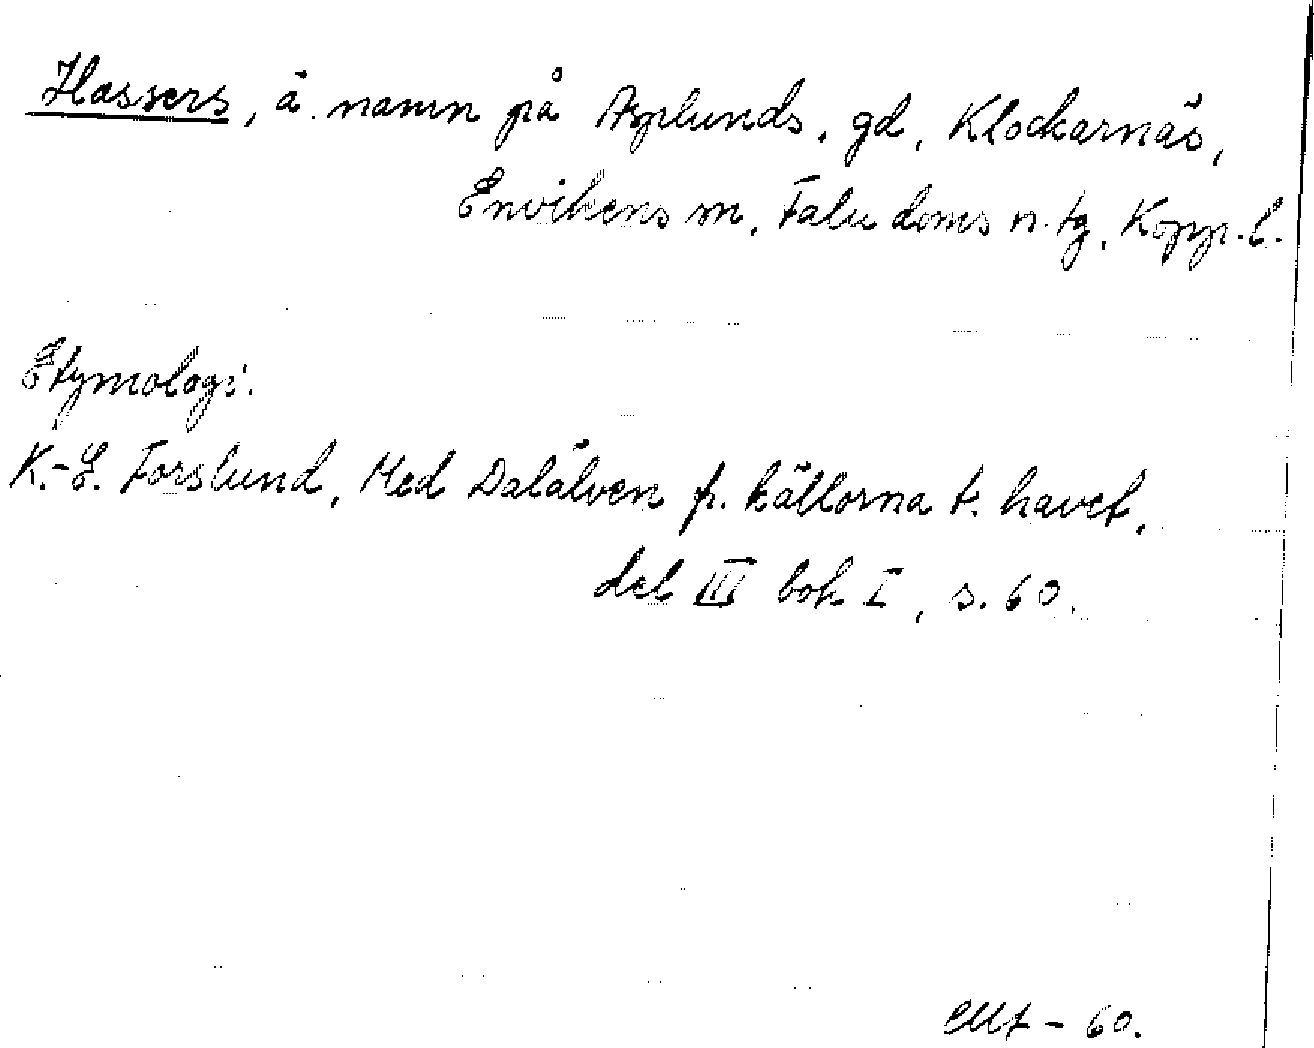 Hassers, ä. namn på Asplunds, gd, Klockarnäs,
Envikens sn, Falu doms n. tg, Kopp. l.
Etymologi.
K.-E. Forslund, Med Dalälven fr. källorna t. havet,
del III bok I, s. 60.
- 60.